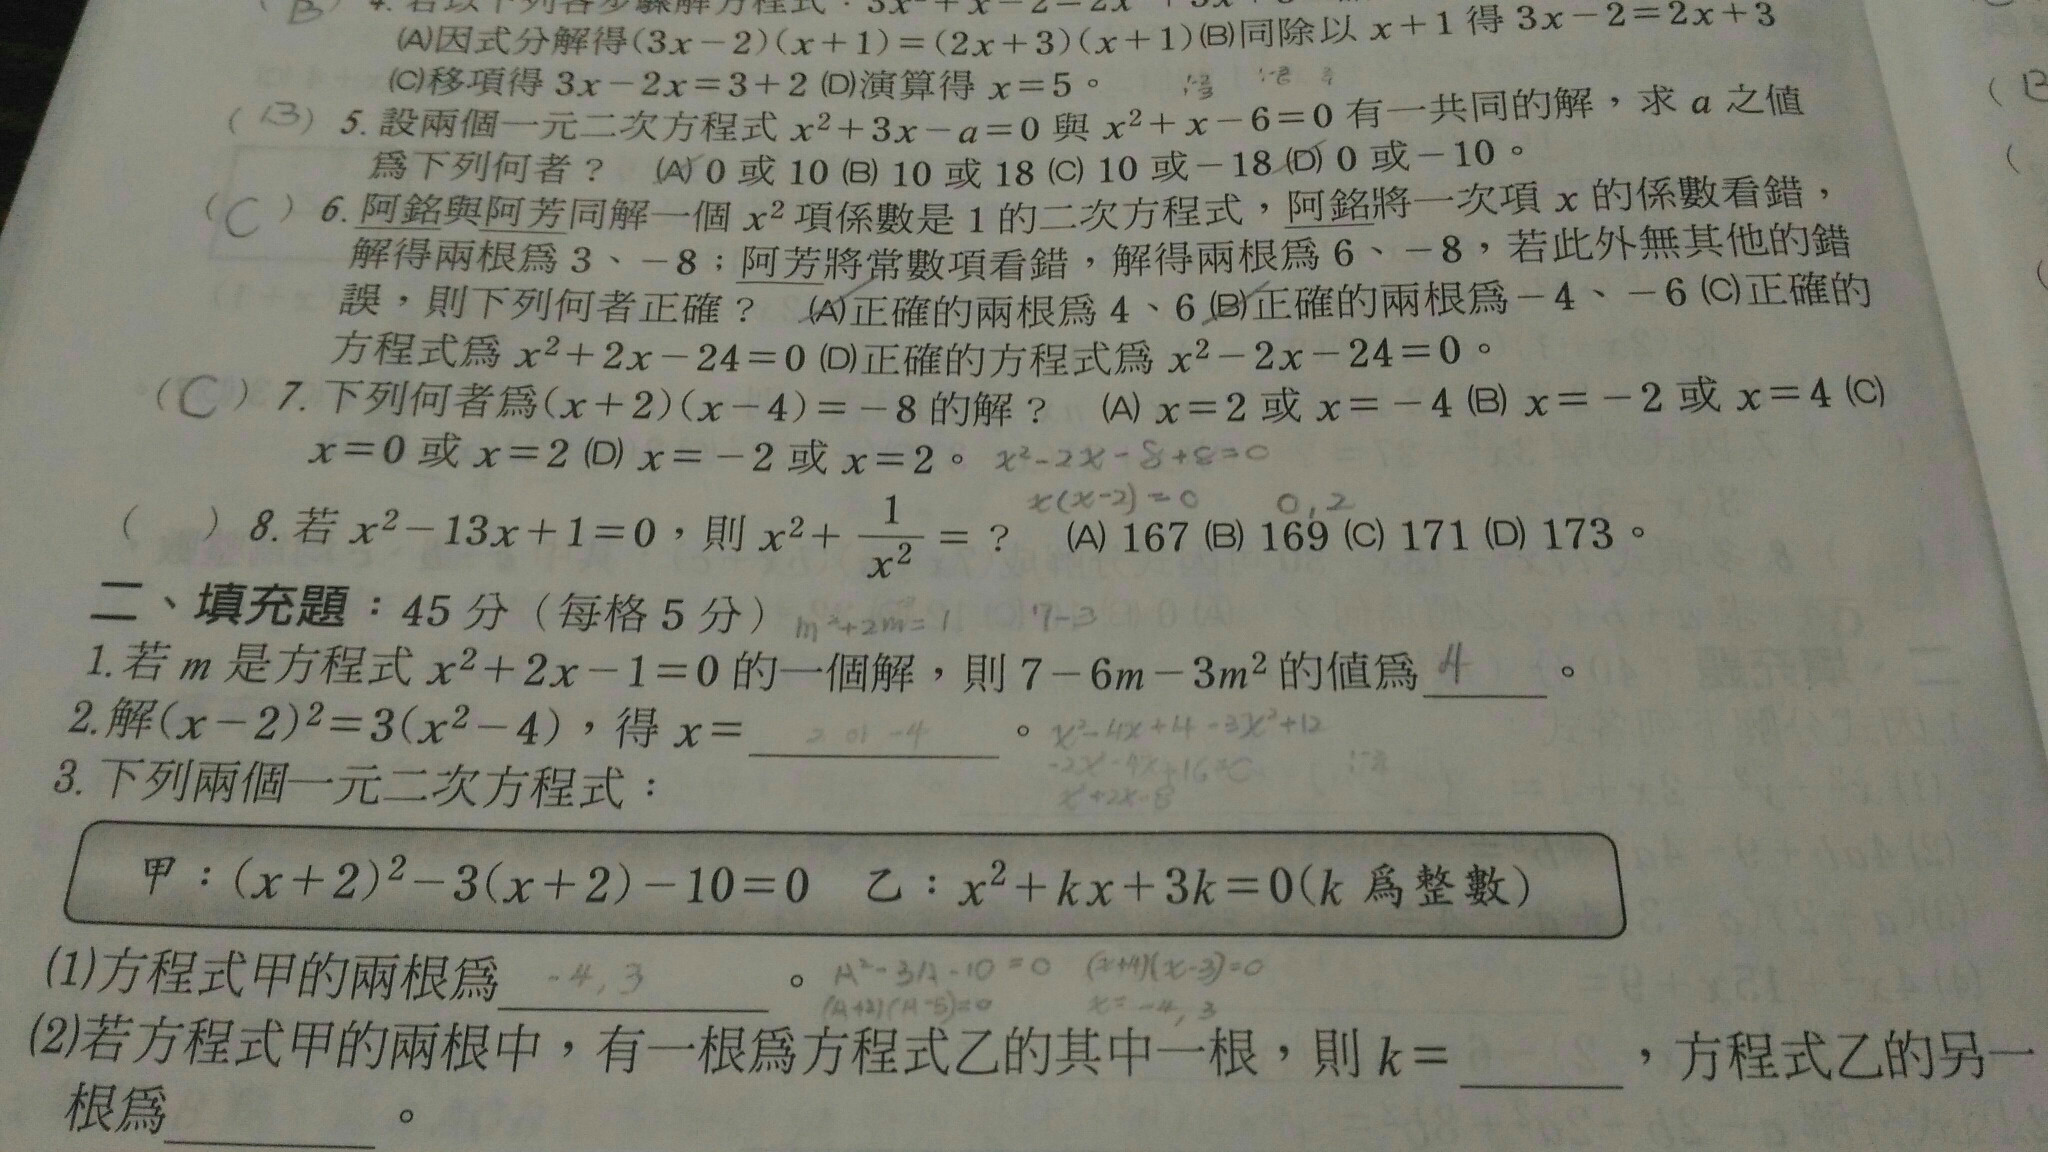 (B) 4.
(A)因式分解得(3x－2)(x＋1)＝(2x＋3)(x＋1)(B)同除以 x＋1 得 3x－2＝2x＋3
(C)移項得 3x－2x＝3＋2 (D)演算得 x＝5。
(B) 5. 設兩個一元二次方程式 x²＋3x－a＝0 與 x²＋x－6＝0 有一共同的解，求 a 之值
爲下列何者？ (A) 0 或 10 (B) 10 或 18 (C) 10 或－18 (D) 0 或－10。
(C) 6. 阿銘與阿芳同解一個 x² 項係數是 1 的二次方程式，阿銘將一次項 x 的係數看錯，
解得兩根爲 3、－8；阿芳將常數項看錯，解得兩根爲 6、－8，若此外無其他的錯
誤，則下列何者正確？ (A)正確的兩根爲 4、6 (B)正確的兩根爲－4、－6 (C)正確的
方程式爲 x²＋2x－24＝0 (D)正確的方程式爲 x²－2x－24＝0。
(C) 7. 下列何者爲(x＋2)(x－4)＝－8 的解？ (A) x＝2 或 x＝－4 (B) x＝－2 或 x＝4 (C)
x＝0 或 x＝2 (D) x＝－2 或 x＝2。 x²-2x-8+8=0
x(x-2)=0 0,2
( ) 8. 若 x²－13x＋1＝0，則 x²＋1/x²＝？ (A) 167 (B) 169 (C) 171 (D) 173。
二、填充題：45 分（每格 5 分） m²+2m=1 7-3
1. 若 m 是方程式 x²＋2x－1＝0 的一個解，則 7－6m－3m² 的值爲 4 。
2. 解(x－2)²＝3(x²－4)，得 x＝ 2 or -4 。 x²-4x+4-3x²+12
-2x²-4x+16=0
x²+2x-8
3. 下列兩個一元二次方程式：
甲：(x＋2)²－3(x＋2)－10＝0 乙：x²＋kx＋3k＝0(k 爲整數)
(1)方程式甲的兩根爲 -4,3 。 A²-3A-10=0 (x+4)(x-3)=0
(A+2)(A-5)=0 x=-4,3
(2)若方程式甲的兩根中，有一根爲方程式乙的其中一根，則 k＝ ，方程式乙的另一
根爲 。